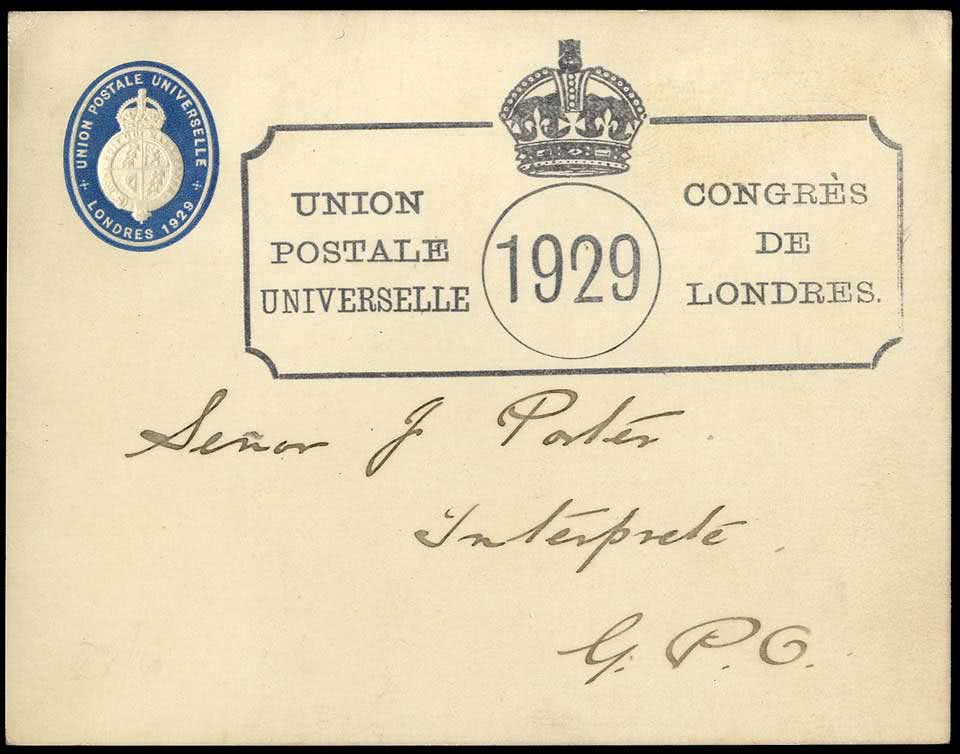 UNION POSTALE UNIVERSELLE
LONDRES 1929
UNION
POSTALE
UNIVERSELLE
1929
CONGRÈS
DE
LONDRES.
Señor J Porter
Intérprete
G.P.O.